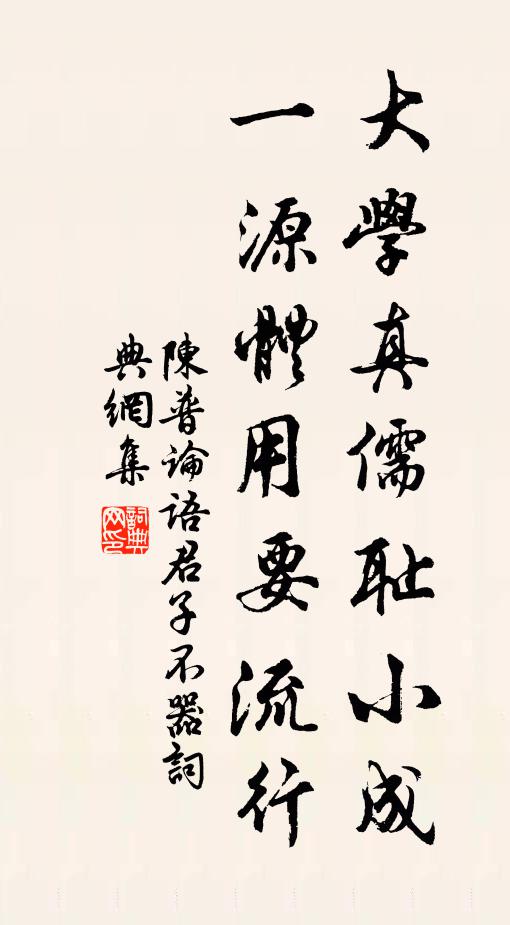 大學真儒耻小成
一源體用要流行
陳普論語君子不器詞
典網集
詞典
网印